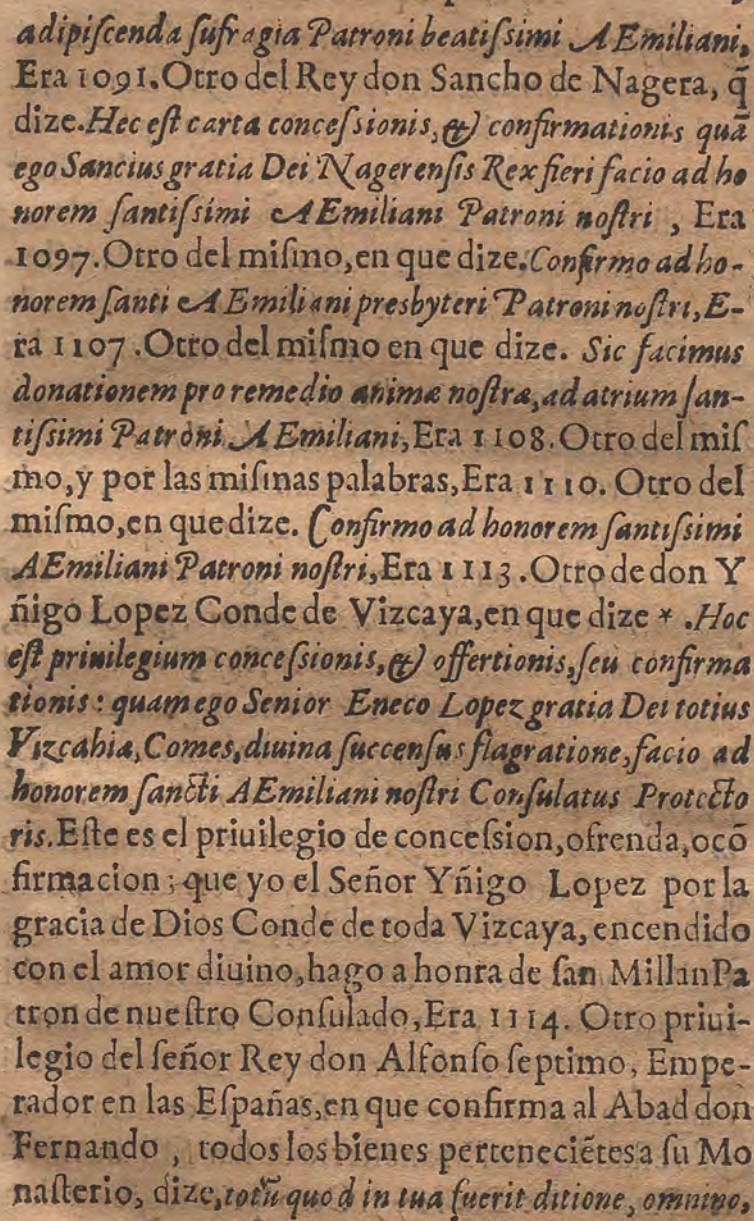 adipiſcenda ſufragia Patroni beatiſsimi AEmiliani,
Era 1091. Otro del Rey don Sancho de Nagera, q̃
dize. Hec eſt carta conceſsionis, & confirmationis quã
ego Sancius gratia Dei Nagerenſis Rex fieri facio ad ho
norem ſantiſsimi AEmiliani Patroni noſtri, Era
1097. Otro del miſmo, en que dize. Confirmo ad ho-
norem ſanti AEmiliani presbyteri Patroni noſtri, E-
ra 1107. Otro del miſmo en que dize. Sic facimus
donationem pro remedio animæ noſtræ, ad atrium ſan-
tiſsimi Patroni AEmiliani, Era 1108. Otro del miſ
mo, y por las miſmas palabras, Era 1110. Otro del
miſmo, en que dize. Confirmo ad honorem ſantiſsimi
AEmiliani Patroni noſtri, Era 1113. Otro de don Y
ñigo Lopez Conde de Vizcaya, en que dize * . Hoc
eſt priuilegium conceſsionis, & offertionis, ſeu confirma
tionis: quam ego Senior Eneco Lopez gratia Dei totius
Vizcahiæ, Comes, diuina ſuccenſus flagratione, facio ad
honorem ſancti AEmiliani noſtri Conſulatus Protecto
ris. Eſte es el priuilegio de conceſsion, ofrenda, o cõ
firmacion; que yo el Señor Yñigo Lopez por la
gracia de Dios Conde de toda Vizcaya, encendido
con el amor diuino, hago a honra de ſan Millan Pa
tron de nueſtro Conſulado, Era 1114. Otro priui-
legio del ſeñor Rey don Alfonſo ſeptimo, Empe-
rador en las Eſpañas, en que confirma al Abad don
Fernando, todos los bienes perteneciẽtes a ſu Mo
naſterio, dize, totũ quod in tua fuerit ditione, omnino,